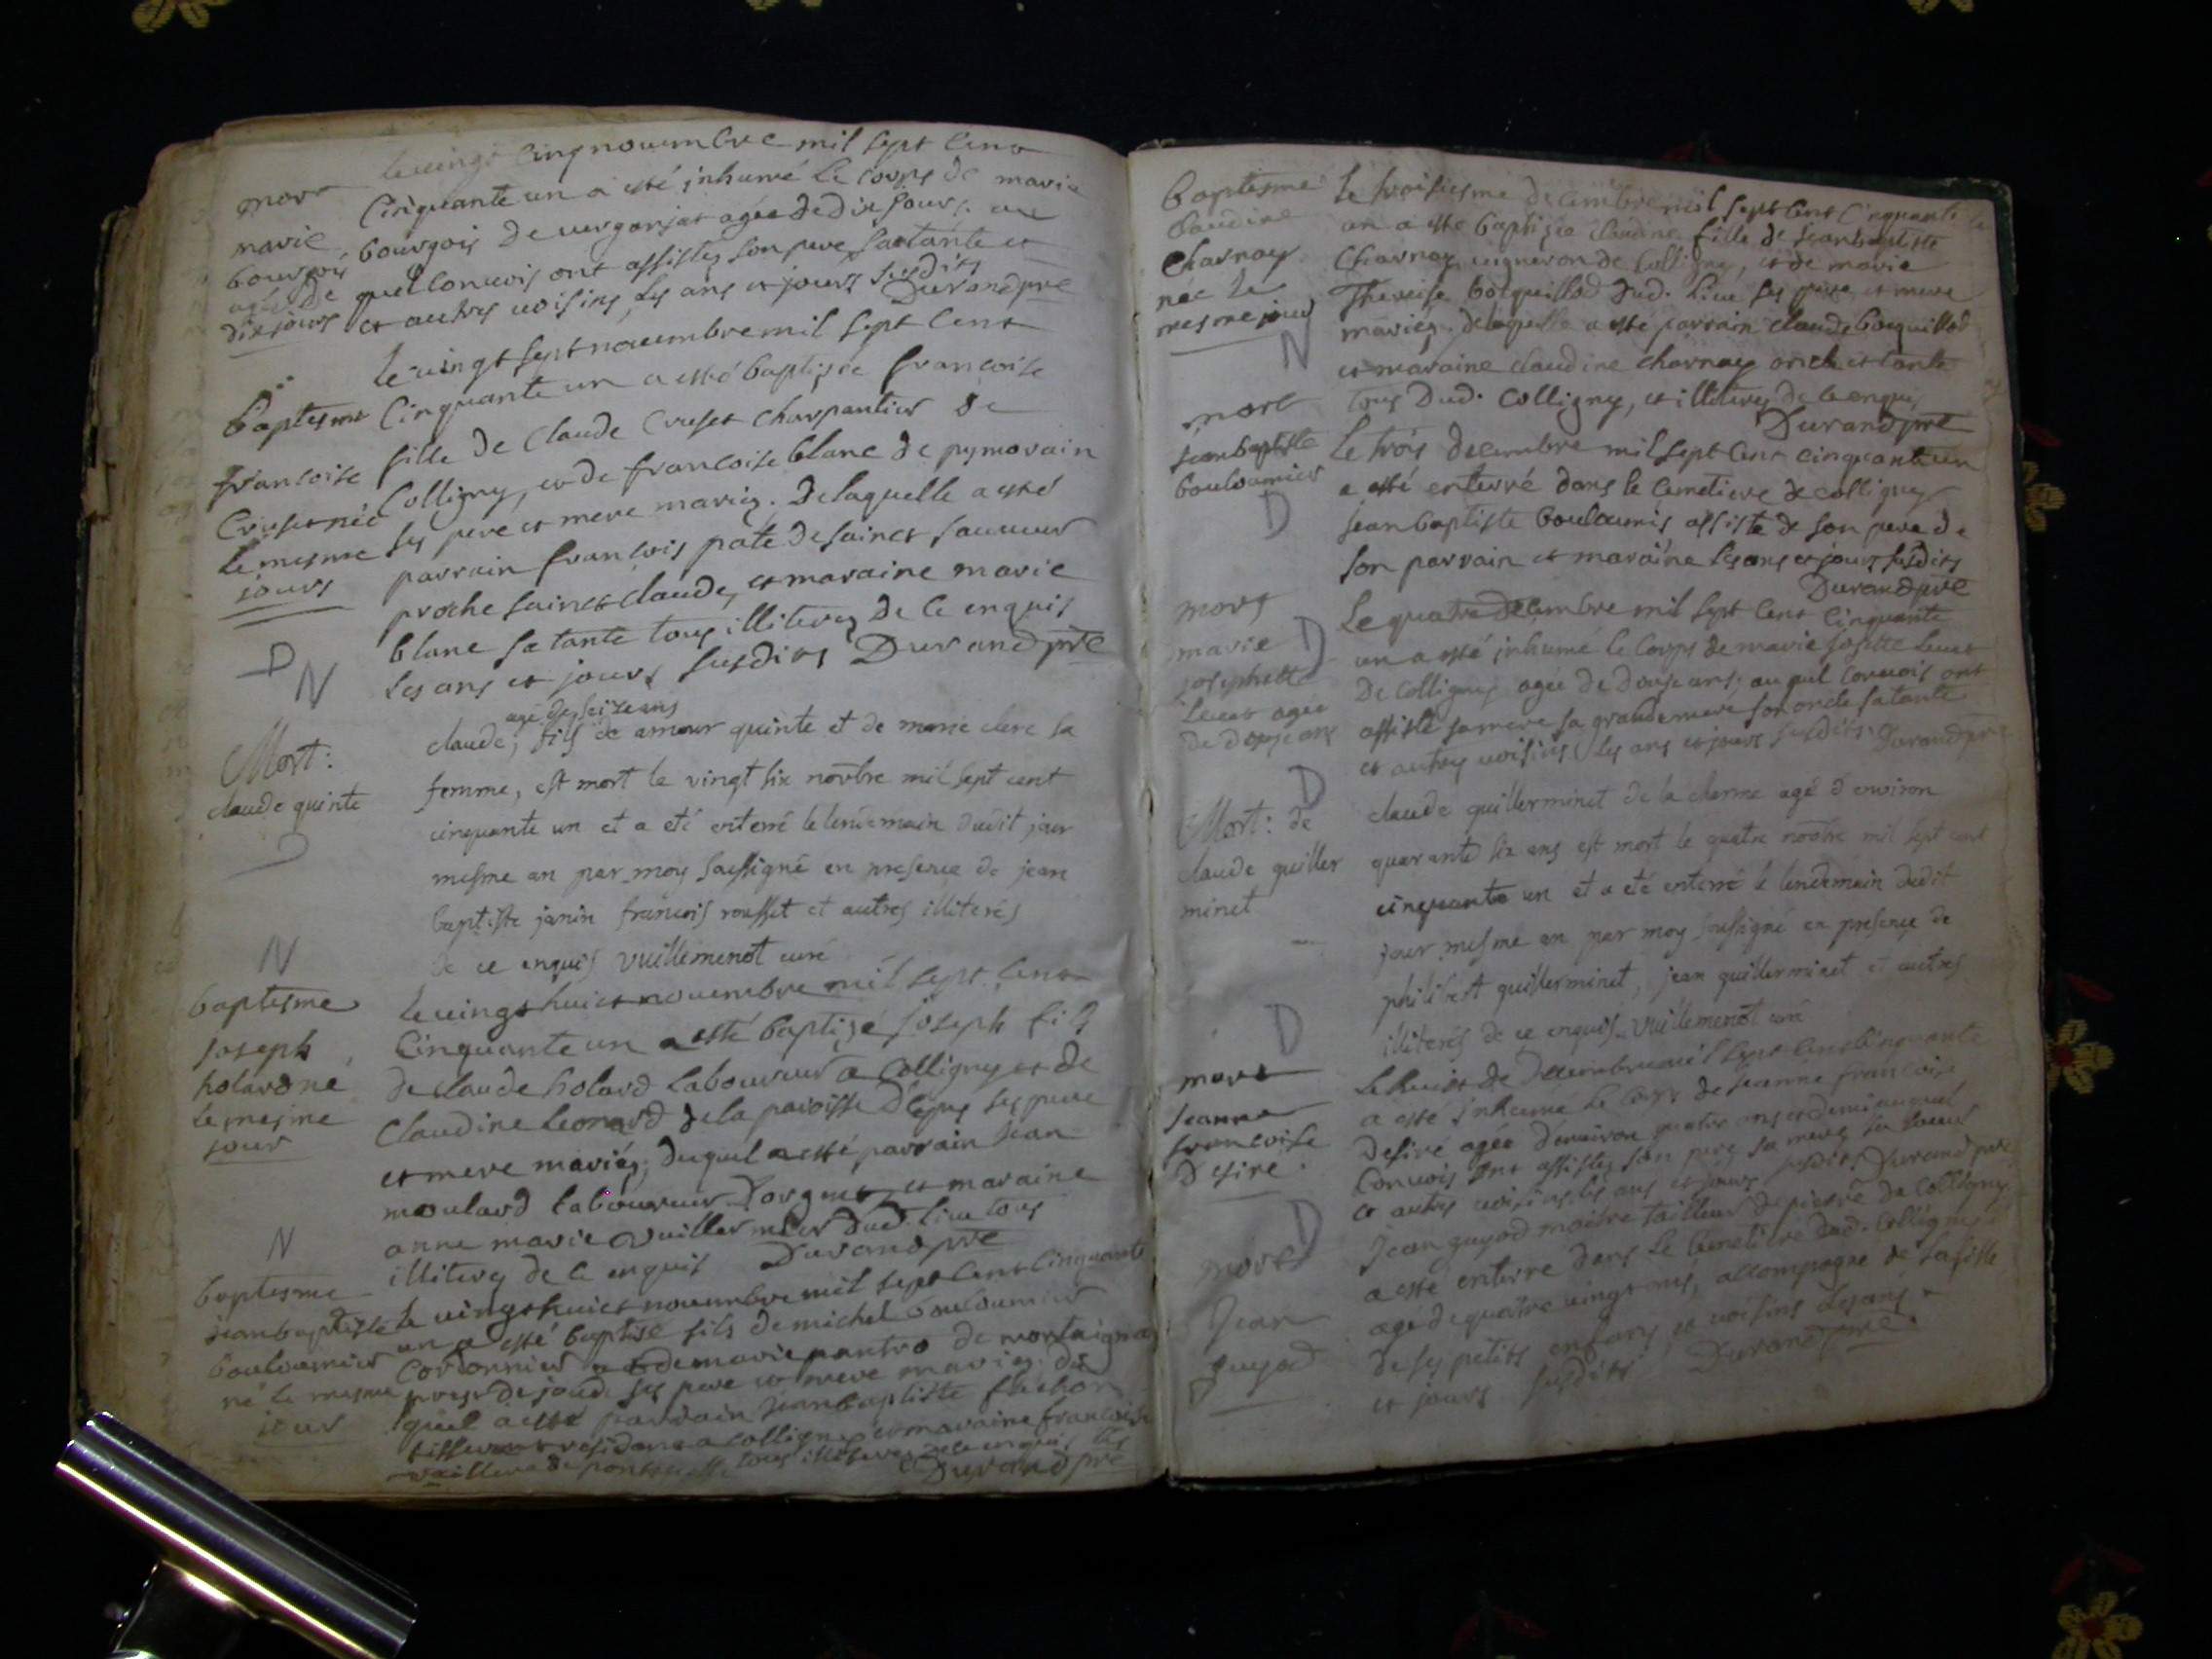 mort
marie
bourgois
agée de
dix jours
le vingt cinq nouembre mil sept cent
Cinquante un a esté inhumé le corps de marie
bourgois de uergonjat agée de dix jours. au
quel conuois ont assistez son pere sa tante et
et autres uoisins, les ans et jours susdits
Durand ptre
Baptesme
francoise
Cruset née
le mesme
jours
N
le uingt sept nouembre mil sept cent
Cinquante un a esté baptisée francoise
fille de Claude Cruset Charpantier de
Colligny, et de francoise blanc de pymorain
ses pere et mere mariez. De laquelle a esté
parrain francois pate de sainct sauueur
proche sainct claude, et maraine marie
blanc sa tante tous illiterez de ce enquis
les ans et jours susdits Durand ptre
Mort:
claude quinte
agé de seize ans
claude, fils de amour quinte et de marie clerc sa
femme, est mort le vingt six novbre mil sept cent
cinquante un et a eté enterré le lendemain dudit jour
mesme an par moy soussigné en presence de jean
baptiste janin francois rousset et autres illiterés
de ce enquis vuillemenot curé
N
baptesme
Joseph
holard né
le mesme
jour
le uingt huict nouembre mil sept cent
Cinquante un a esté baptizé joseph fils
de claude holard laboureur a Colligny et de
Claudine Leonard de la paroisse d'epys ses pere
et mere mariéz; duquel a esté parrain Jean
moulard laboureur Dorgens, et maraine
anne marie Vuillermier dud. lieu tous
illiterez de ce enquis Durand ptre
N
baptesme
jean baptiste
bouloumier
né le mesme
jour
le uingt huict nouembre mil sept cent cinquante
un a esté baptisé fils de michel bouloumier
Cordonnier et de marie pantro de montaigna
pres de joud. ses pere et mere mariez. du
quel a esté parrain jean baptiste
resident a colligny et maraine francoise
tous illiterez de ce enquis les
Durand ptre
Baptesme
Claudine
Charnay
née le
mesme jour
N
Le troisiesme decembre mil sept cent Cinquante
un a esté baptizée Claudine fille de Jean baptiste
Charnay uigneron de Colligny, et de marie
Thereise bocquillod dud. lieu ses pere et mere
mariéz. de laquelle a esté parrain claude bocquillod
et maraine claudine charnay oncle et tante
tous Dud. Colligny, et illiterez de ce enquis
Durand ptre
mort
jean baptiste
bouloumier
D
Le trois decembre mil sept cent cinquante un
a esté enterré dans le cemetiere de colligny
Jean baptiste bouloumié assisté de son pere de
son parrain et maraine les ans et jours susdits
Durand ptre
mort
marie
josephette
agée
de douze ans
D
Le quatre decembre mil sept cent Cinquante
un a esté inhumé le Corps de marie
De Colligny agée de douze ans; au quel conuois ont
assisté sa mere sa grande mere son oncle sa tante
et autres uoisins les ans et jours susdits. Durand ptre
D
Mort: de
claude guiller
minet
claude guillerminet de la charme agé d'environ
quarante six ans est mort le quatre novbre mil sept cent
cinquante un et a eté enterré le lendemain dudit
jour mesme an par moy soussigné en presence de
philibert guillerminet, jean guillerminet et autres
illiterés de ce enquis. Vuillemenot curé
D
mort
Jeanne
francoise
Desiré.
Le huict de Decembre mil sept cent Cinquante
a esté inhumé le corps de jeanne francoise
Desiré agée denuiron quatre ans et demi auquel
Conuois ont assistez son pere sa mere sa soeur
et autres uoisins les ans et jours susdits Durand ptre
D
mort
Jean
guyod
Jean guyod maitre tailleur de pierre de Colligny
a esté enterré dans le Cemetiere dud. Colligny
agé de quatre uingt ans, accompagné de sa fille
de ses petits enfans et uoisins les ans
et jours susdits Durand ptre.